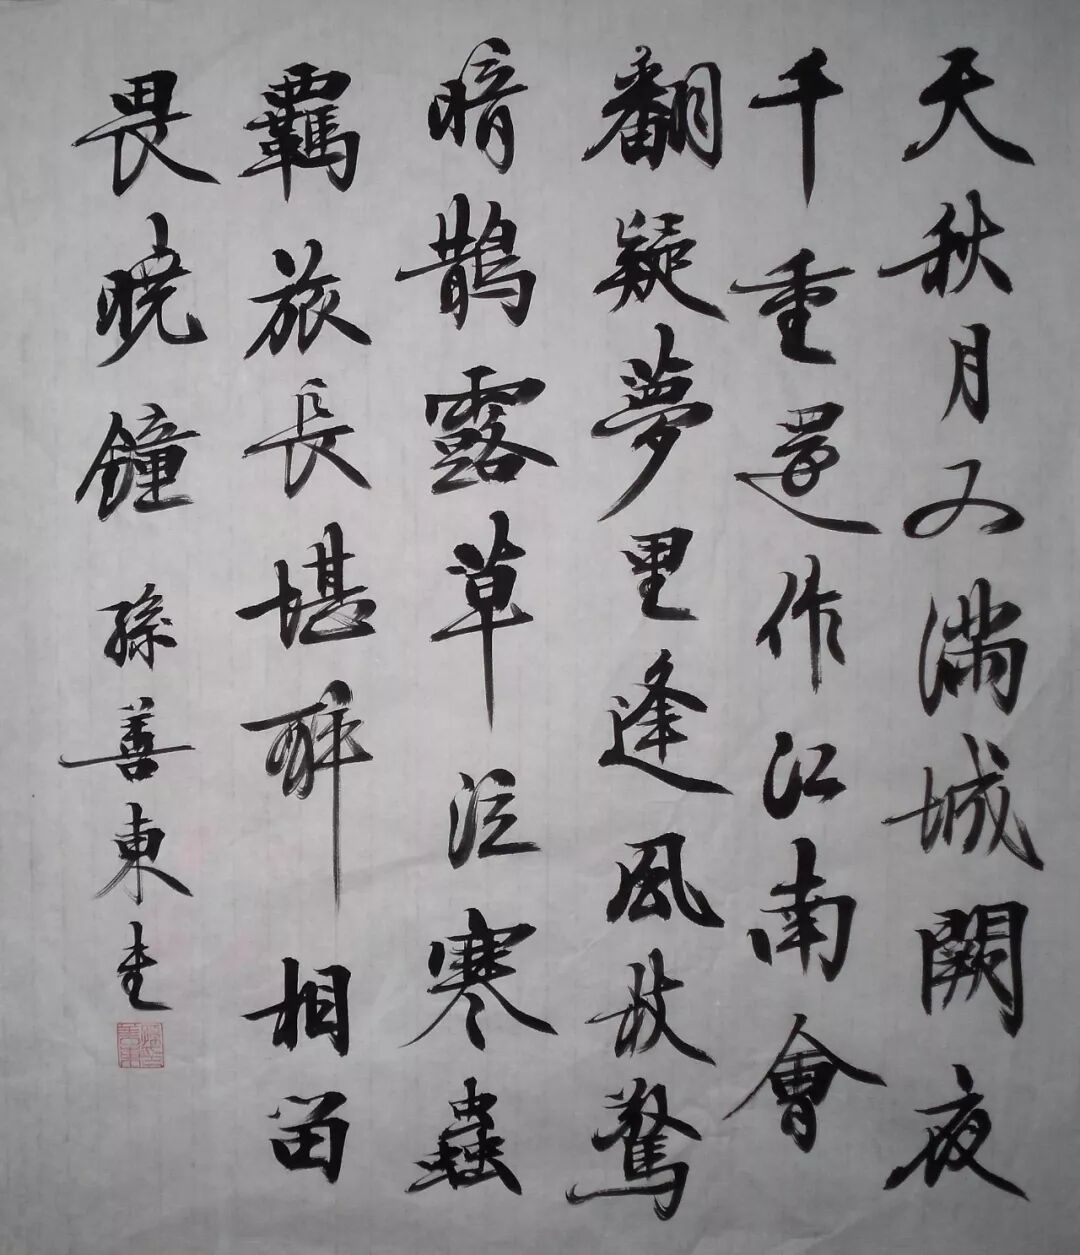 天秋月又滿城闕夜
千重還作江南會
翻疑夢里逢風枝驚
暗鵲露草泣寒蟲
羈旅長堪酔相留
畏曉鐘 孫善東书